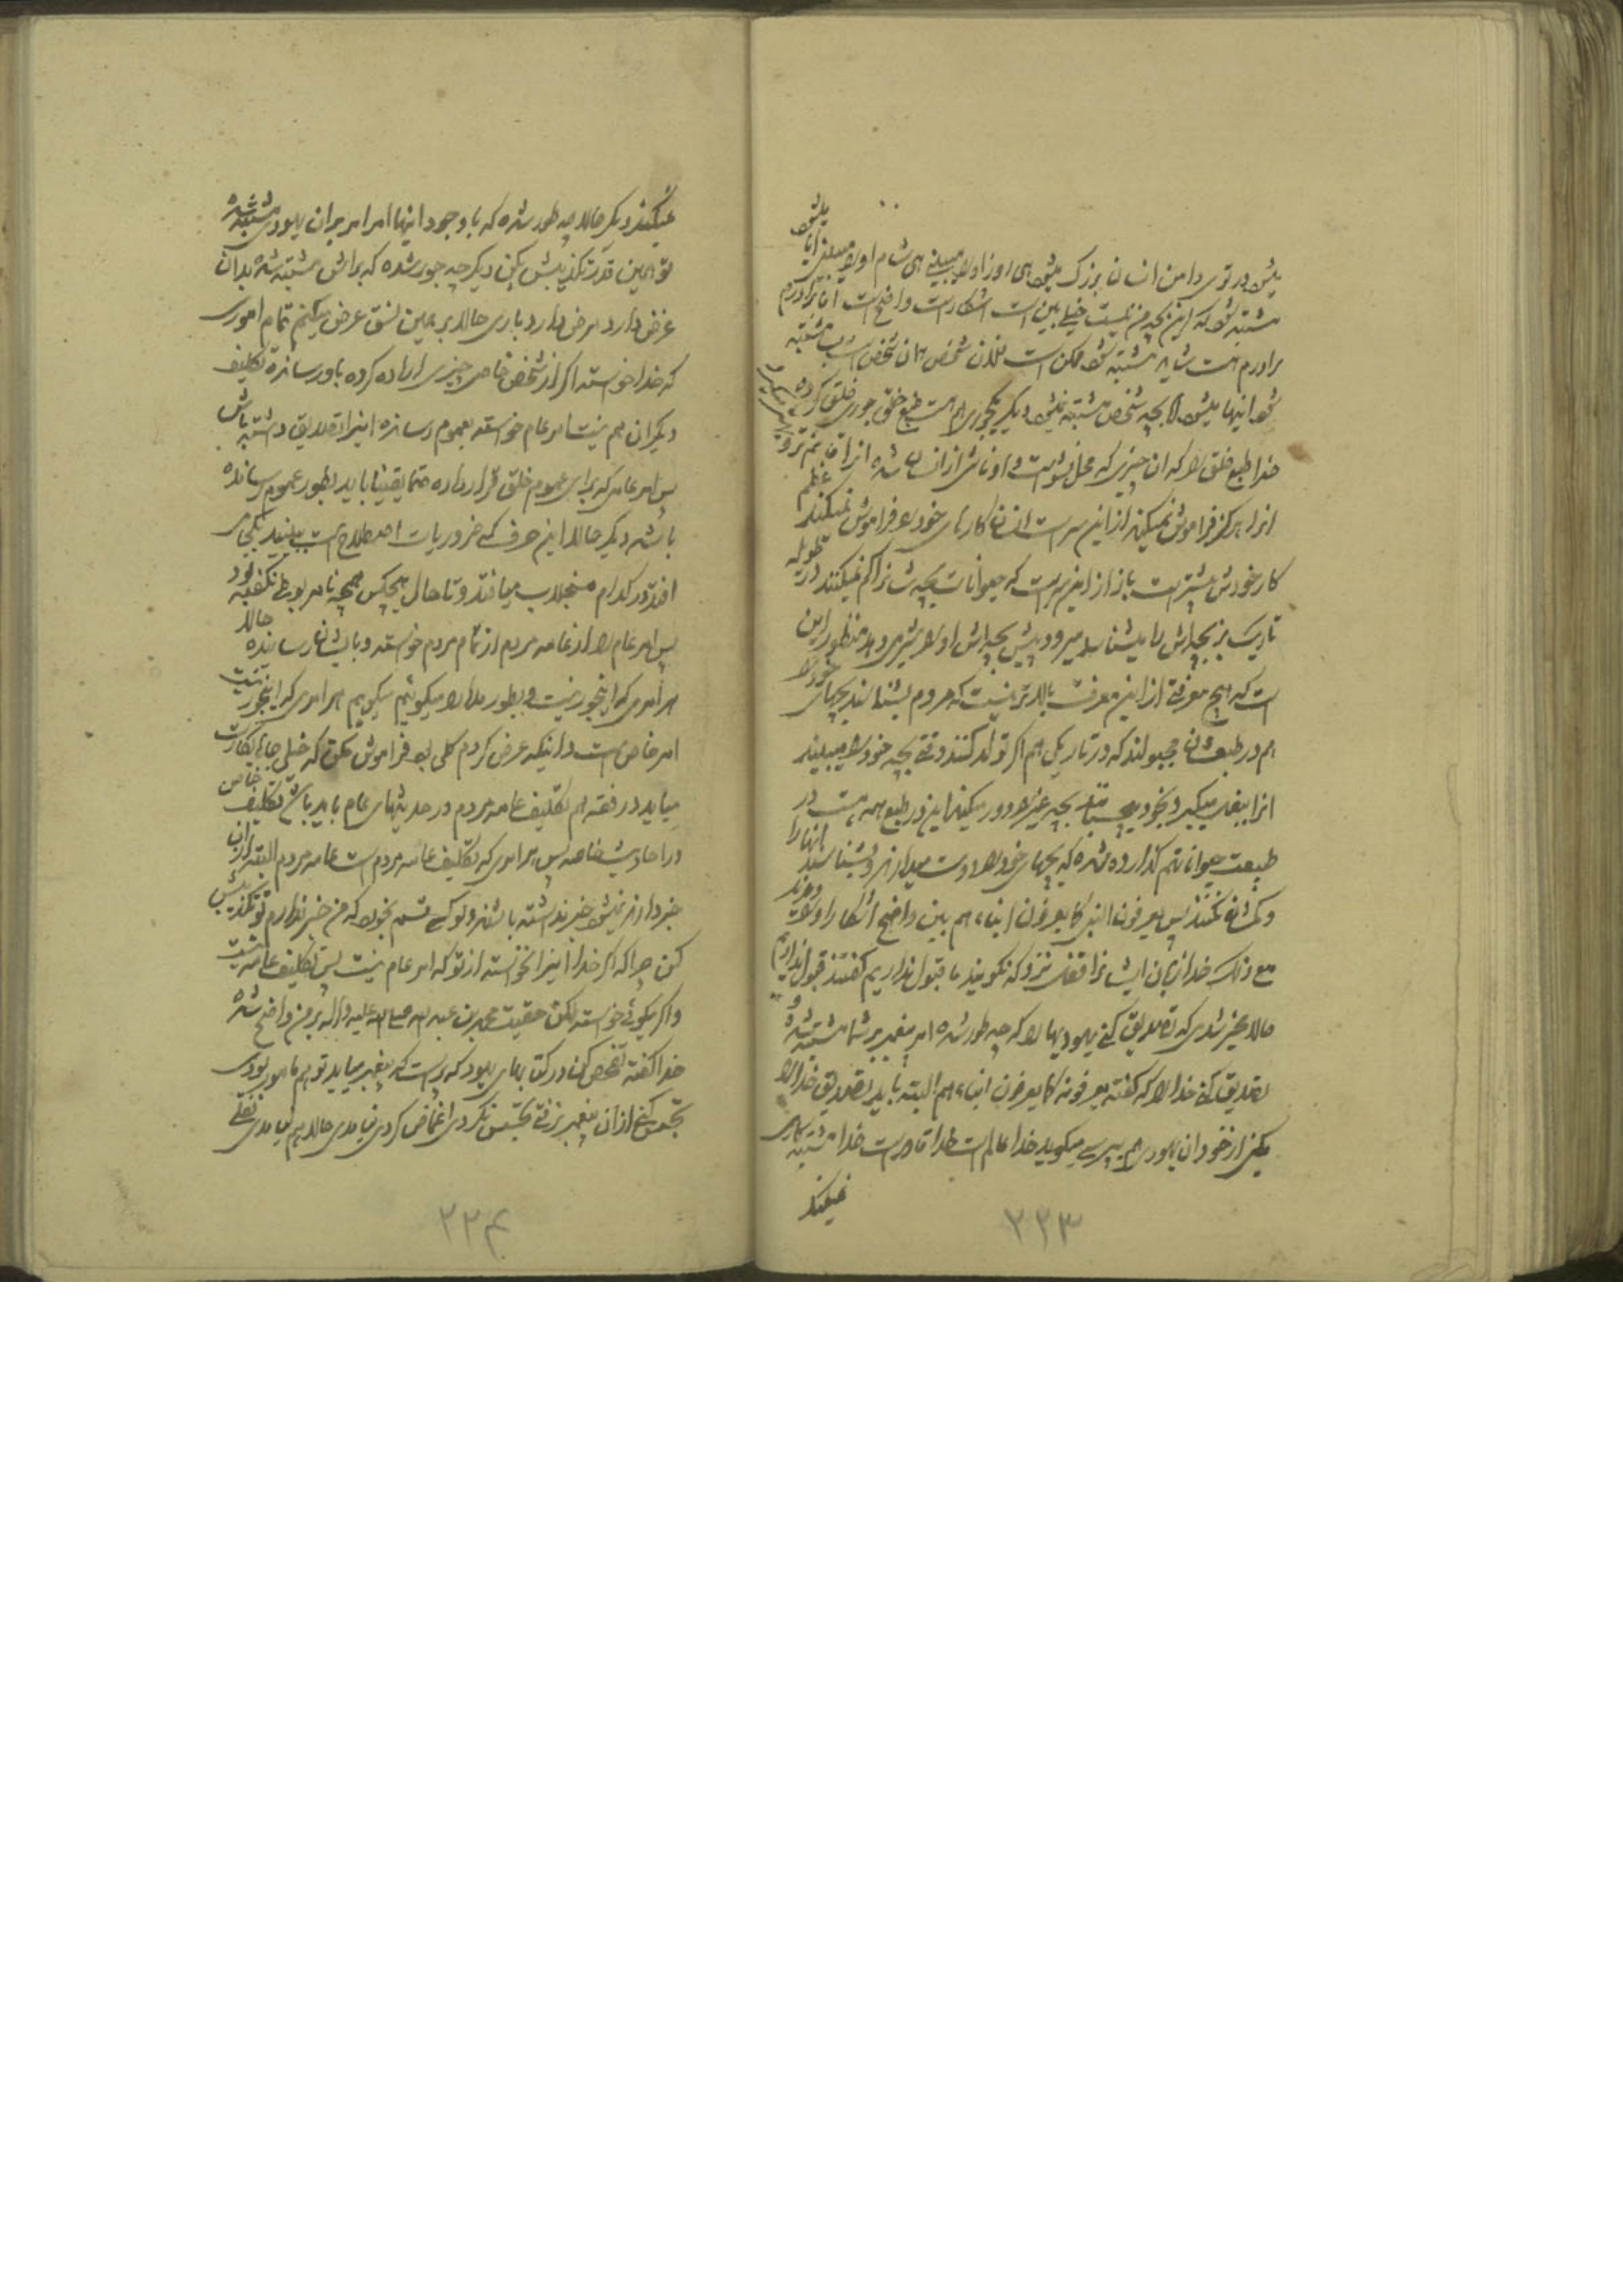 میشود در توی دامن انسان بزرگ میشود هی روز او را میبینی هی شام او را میبینی آیا میشود
مشتبه شود که این بچه من نیست خیلی بین است آشکار است واضح است آن برادرم
برادرم هست شاید مشتبه شود ممکن است فلان شخص آن شخص است مشتبه
شود اینها میشود اما بچه شخص مشتبه نمیشود دیگر یکجوری هم هست طبع خلق جوری خلق کرده
خدا طبع خلق را که آن چیزی که محل
آنرا هرگز فراموش نمیکند از این سر است انسان کارهای خود را فراموش نمیکند
کار خودش بیشتر است باز از این سر است که حیوانات بچه‌شان را گم نمیکنند در طویله
تاریک بز بچه‌اش را میشناسد میرود پیش بچه‌اش او را شیر میدهد منظور این
است که هیچ معرفتی از این معرفت بالاتر نیست که مردم بشناسند بچهای خود را
هم در طبعشان مجبولند که در تاریکی هم اگر تولد کنند وقتی بچه خود را میبینند
آنرا ببغل میگیرد بخود میچسباند بچه غیر را دور میکند این در طبع همه هست در
طبیعت حیوانات هم گذارده شده که بچهای خود را دوست میدارند و بشناسند آنها را
و گمشان نکنند پس یعرفون النبی کما یعرفون ابناءهم بین واضح آشکارا و
مع ذلک خدا زبان ایشان را قفل نزد که نگویند ما قبول نداریم گفتند قبول نداریم
حالا عجیز شدی که تصدیق کنی یهودیها را که چه طور شده امر پیغمبر بر شما مشتبه شده
تصدیق کن خدا را که گفته یعرفونه کما یعرفون ابناءهم البته باید تصدیق خدا را
بکنی از خود آن یهودی هم بپرسی میگوید خدا عالم است خدا قادر است خدا مشتبه کاری
نمیکند
۲۲۳
نمیکند دیگر حالا چه طور شده که با وجود اینها امر امر بر آن یهودی مشتبه شده
تو همین قدر تکذیبش بکن دیگر چه جور شده که برایش مشتبه شده بدان
غرض دارد مرض دارد باری حالا بر همین نسق عرض میکنم تمام اموری
که خدا خواسته اگر از شخص خاصی چیزی اراده کرده باو رسانده تکلیف
دیگران هم نیست امر عام خواسته بعموم رسانده اینرا تصدیق داشته باش
پس امر عامی که برای عموم خلق قرار داده حتما یقینا باید بطور عموم رسانده
باشد دیگر حالا این حرف که ضروریات اصطلاح است ببینید بکجای
افتد در کدام منجلاب میافتد و تا حال هیچکس همچه نامربوطی نگفته بود
پس امر عام را از عامه مردم از تمام مردم خواسته و بایشان رسانیده حالا
هر امری که اینجور نیست و بطور ملأ را میگوئیم میگویم هر امری که اینجور نیست
امر خاص است و اینکه عرض کردم کلی بود فراموش مکن که خیلی جاها بکارت
میاید در فقه هم تکلیف عامه مردم در حدیثهای عام باید باشد تکلیف خاص
در احادیث خاصه پس هر امری که تکلیف عامه مردم است عامه مردم البته از آن
خبر دارند نمیشود خبر نداشته باشند و لو کسی قسم بخورد که من خبر ندارم تو تکذیبش
کن چرا که اگر خدا اینرا نخواسته از تو که امر عام نیست پس تکلیف عامه نیست
و اگر میگوئی خواسته لکن حقیت محمد بن عبد الله صلی الله علیه و آله بر من واضح نشده
خدا گفته تفحص کن در کتابهای یهود که هست که پیغمبر میاید تو هم مامور بودی
تجسس کنی از آن پیغمبر نرفتی تجسس نکردی اغماض کردی نیامدی حالا هم نیامدی
۲۲۴